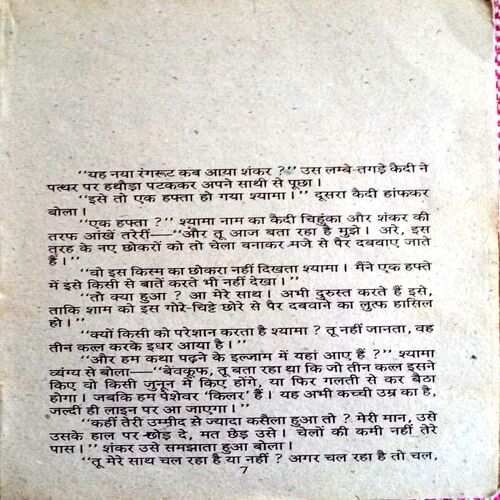 “यह नया रंगरूट कब आया शंकर ?” उस लम्बे-तगड़े कैदी ने
पत्थर पर हथौड़ा पटककर अपने साथी से पूछा।
“इसे तो एक हफ्ता हो गया श्यामा।” दूसरा कैदी हांफकर
बोला।
“एक हफ्ता ?” श्यामा नाम का कैदी चिहुंका और शंकर की
तरफ आंखें तरेरीं—“और तू आज बता रहा है मुझे। अरे, इस
तरह के नए छोकरों को तो चेला बनाकर मजे से पैर दबवाए जाते
हैं।”
“वो इस किस्म का छोकरा नहीं दिखता श्यामा। मैंने एक हफ्ते
में इसे किसी से बातें करते भी नहीं देखा।”
“तो क्या हुआ ? आ मेरे साथ। अभी दुरुस्त करते हैं इसे,
ताकि शाम को इस गोरे-चिट्टे छोरे से पैर दबवाने का लुत्फ हासिल
हो।”
“क्यों किसी को परेशान करता है श्यामा ? तू नहीं जानता, वह
तीन कत्ल करके इधर आया है।”
“और हम कथा पढ़ने के इल्जाम में यहां आए हैं ?” श्यामा
व्यंग्य से बोला—“बेवकूफ, तू बता रहा था कि जो तीन कत्ल इसने
किए वो किसी जुनून में किए होंगे, या फिर गलती से कर बैठा
होगा। जबकि हम पेशेवर ‘किलर’ हैं। यह अभी कच्ची उम्र का है,
जल्दी ही लाइन पर आ जाएगा।”
“कहीं तेरी उम्मीद से ज्यादा कसैला हुआ तो ? मेरी मान, उसे
उसके हाल पर छोड़ दे, मत छेड़ उसे। चेलों की कमी नहीं तेरे
पास।” शंकर उसे समझाता हुआ बोला।
“तू मेरे साथ चल रहा है या नहीं ? अगर चल रहा है तो चल,
7